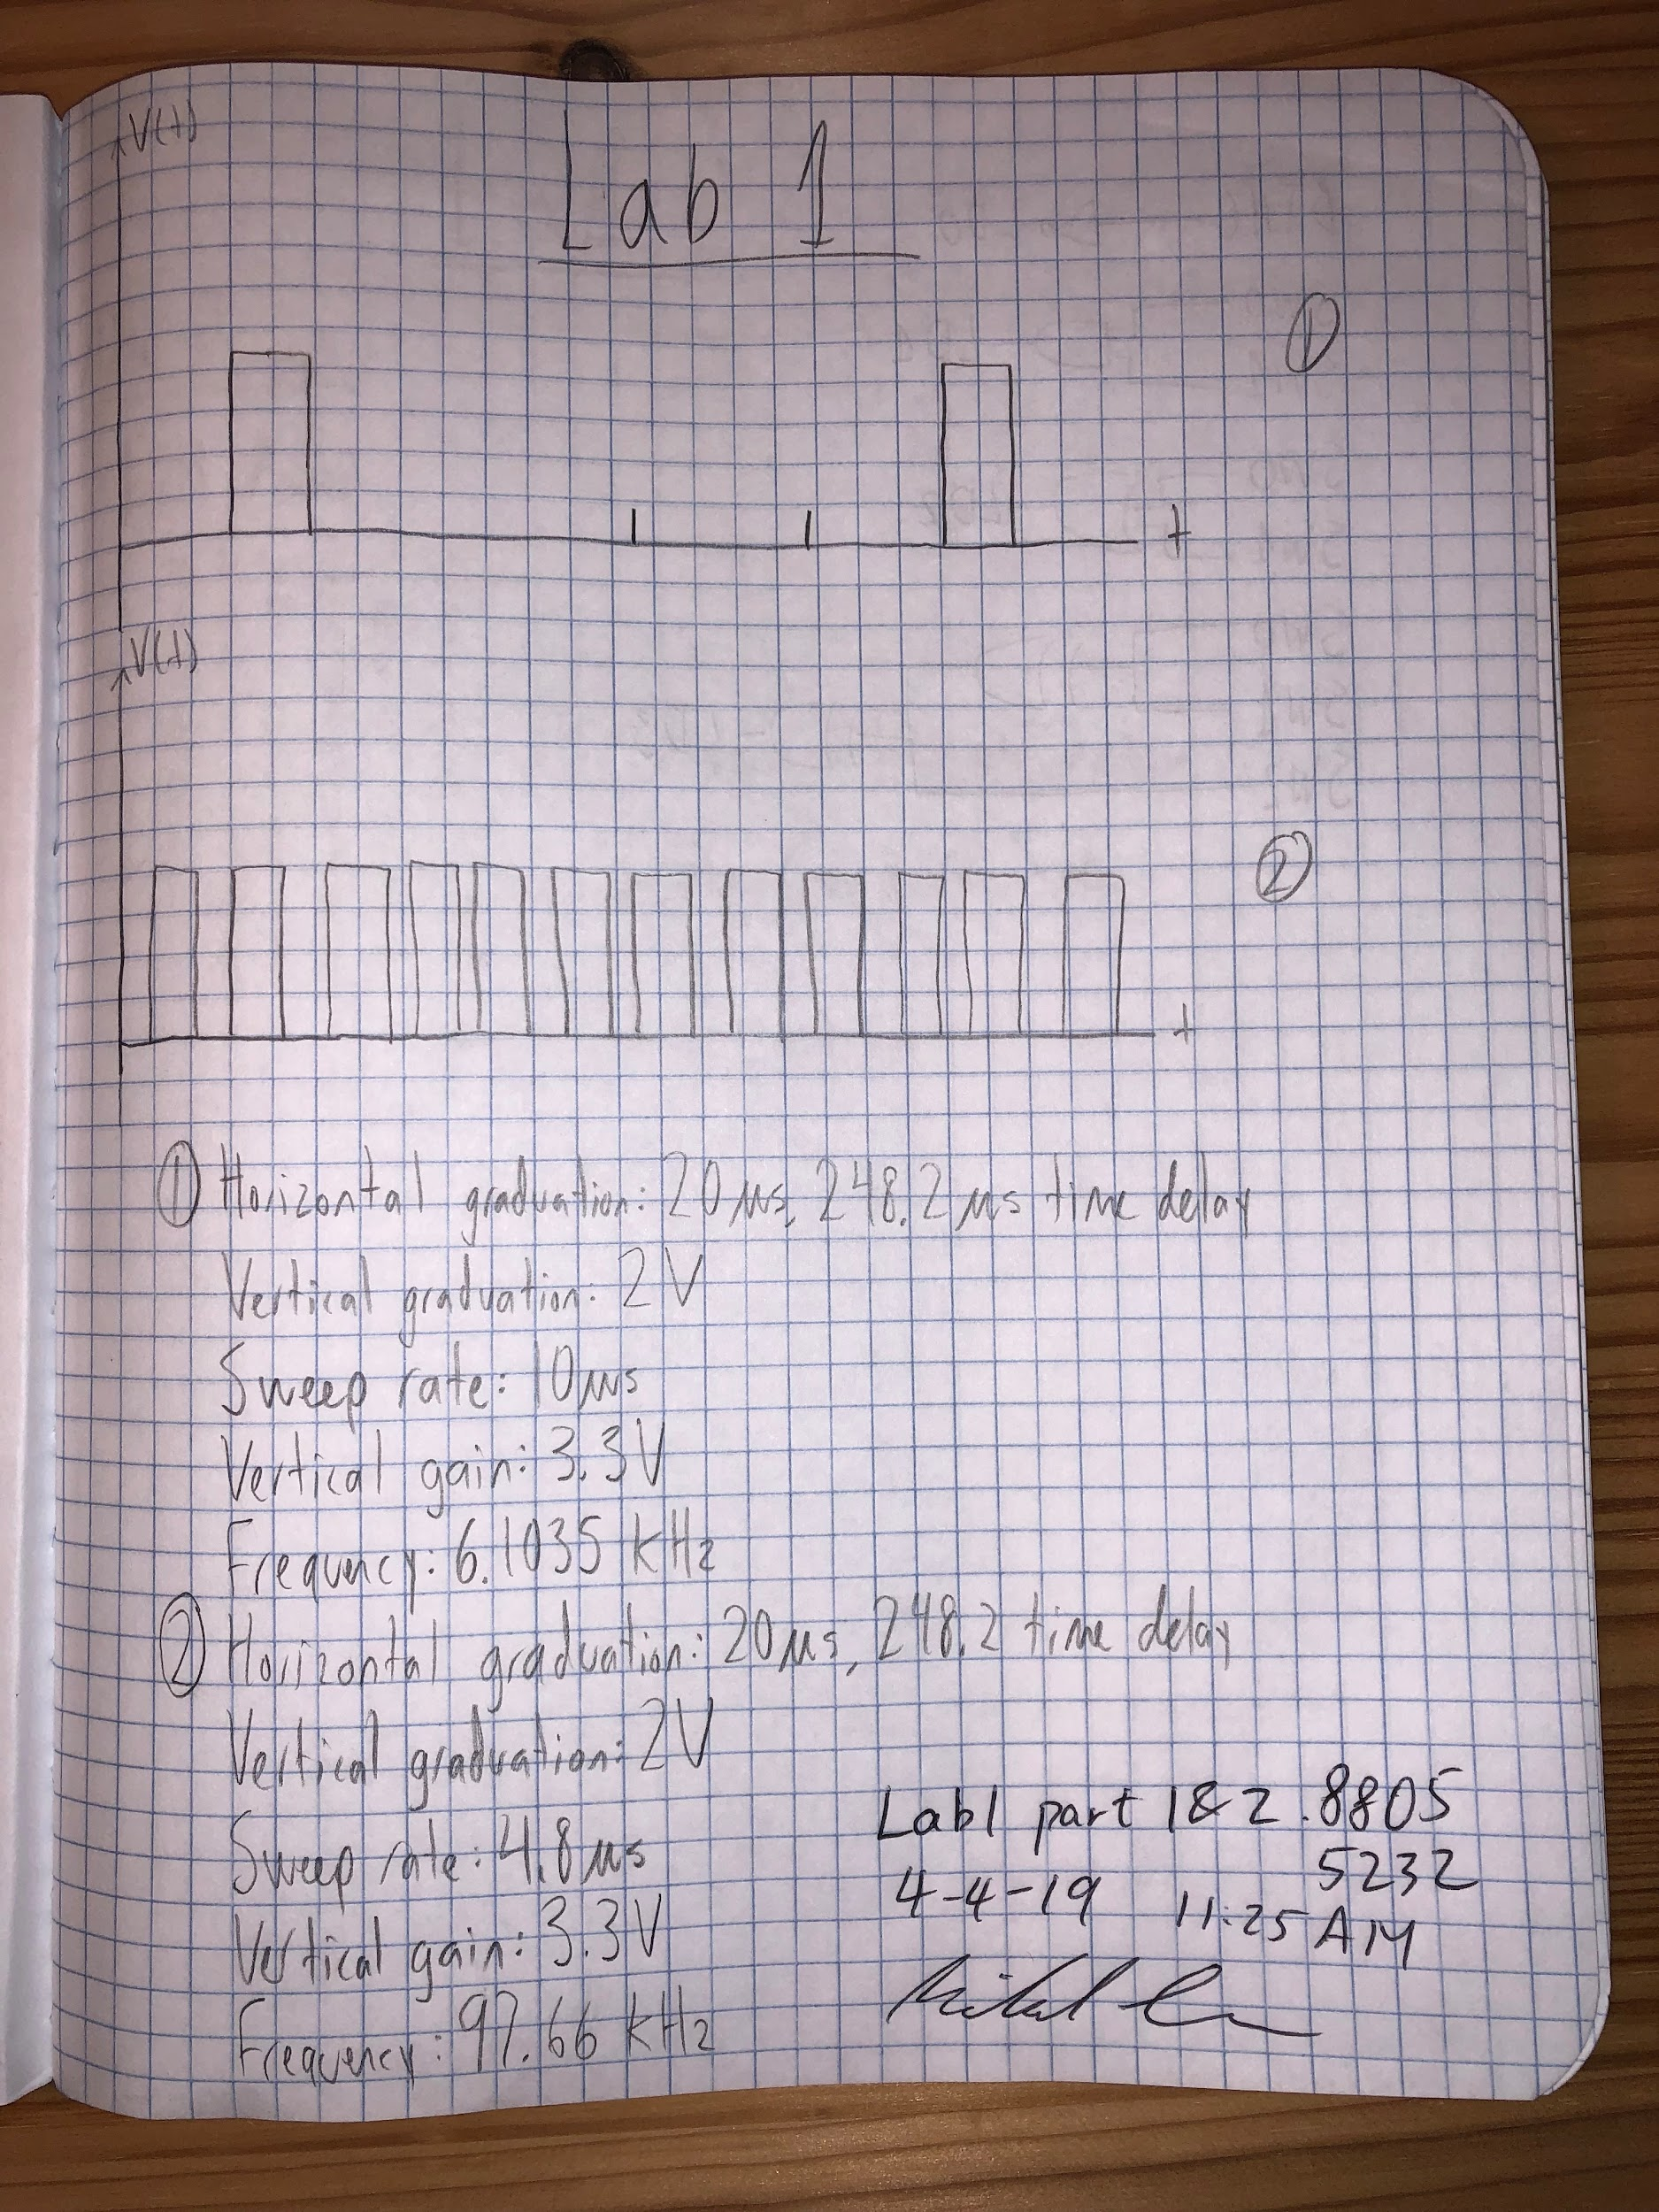 V(t)
Lab 1
①
t
V(t)
②
t
① Horizontal graduation: 20 µs, 248.2 µs time delay
Vertical graduation: 2V
Sweep rate: 10 µs
Vertical gain: 3.3V
Frequency: 6.1035 kHz
② Horizontal graduation: 20 µs, 248.2 time delay
Vertical graduation: 2V
Sweep rate: 4.8 µs
Vertical gain: 3.3V
Frequency: 97.66 kHz
Lab1 part 1&2 .8805
5232
4-4-19 11:25 AM